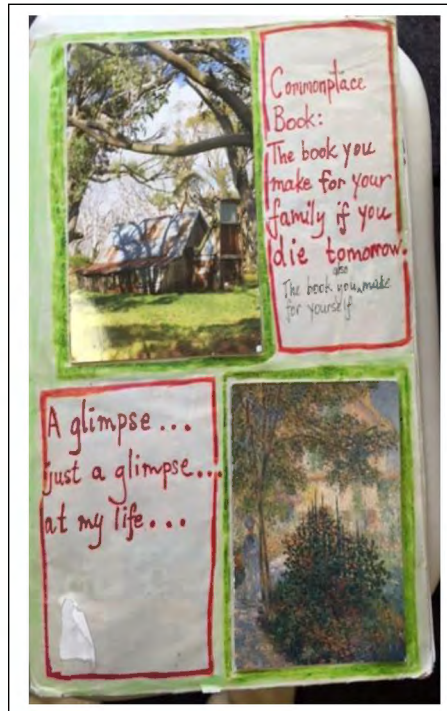 Commonplace
Book:
The book you
make for your
family if you
die tomorrow.
also
The book you make
for yourself
A glimpse...
just a glimpse...
at my life...